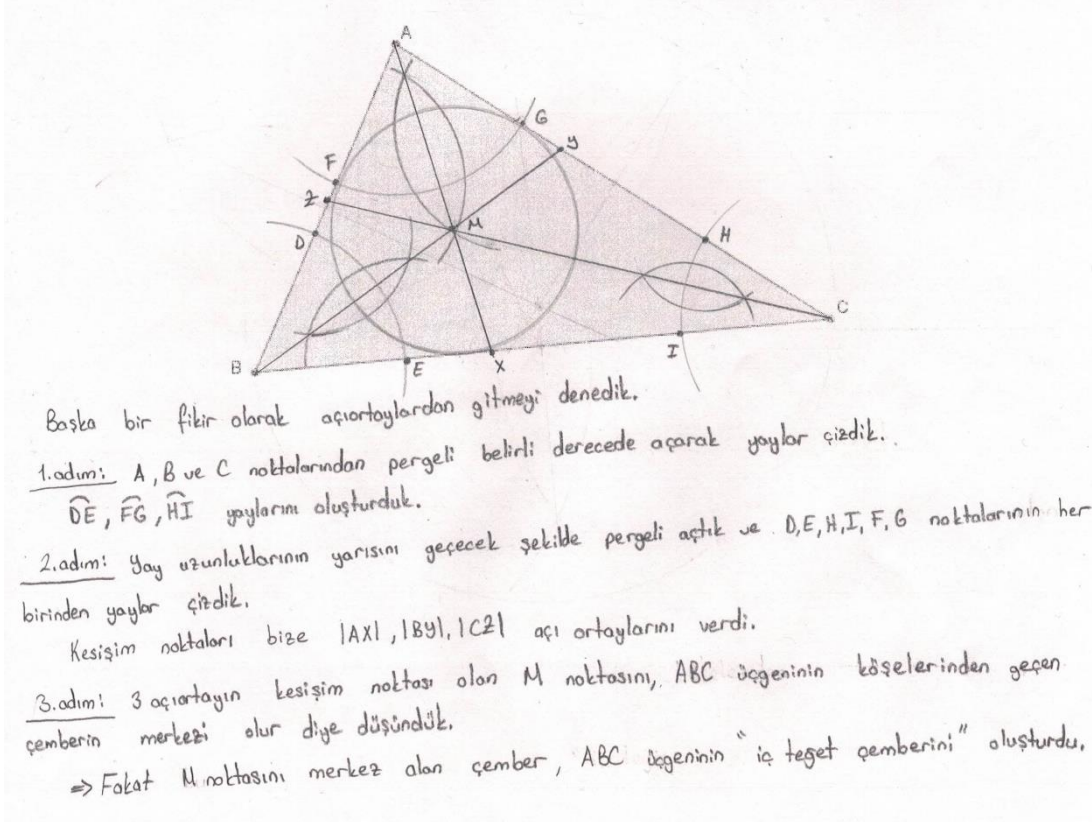 A
G
y
F
Z
D
M
H
C
B
E
X
I
Başka bir fikir olarak açıortaylardan gitmeyi denedik.
1.adım: A, B ve C noktalarından pergeli belirli derecede açarak yaylar çizdik.
DE, FG, HI yaylarını oluşturduk.
2.adım: Yay uzunluklarının yarısını geçecek şekilde pergeli açtık ve D,E,H,I,F,G noktalarının her
birinden yaylar çizdik.
Kesişim noktaları bize |AX|, |BY|, |CZ| açı ortaylarını verdi.
3.adım: 3 açıortayın kesişim noktası olan M noktasını, ABC üçgeninin köşelerinden geçen
çemberin merkezi olur diye düşündük.
=> Fakat M noktasını merkez alan çember, ABC üçgeninin "iç teğet çemberini" oluşturdu.